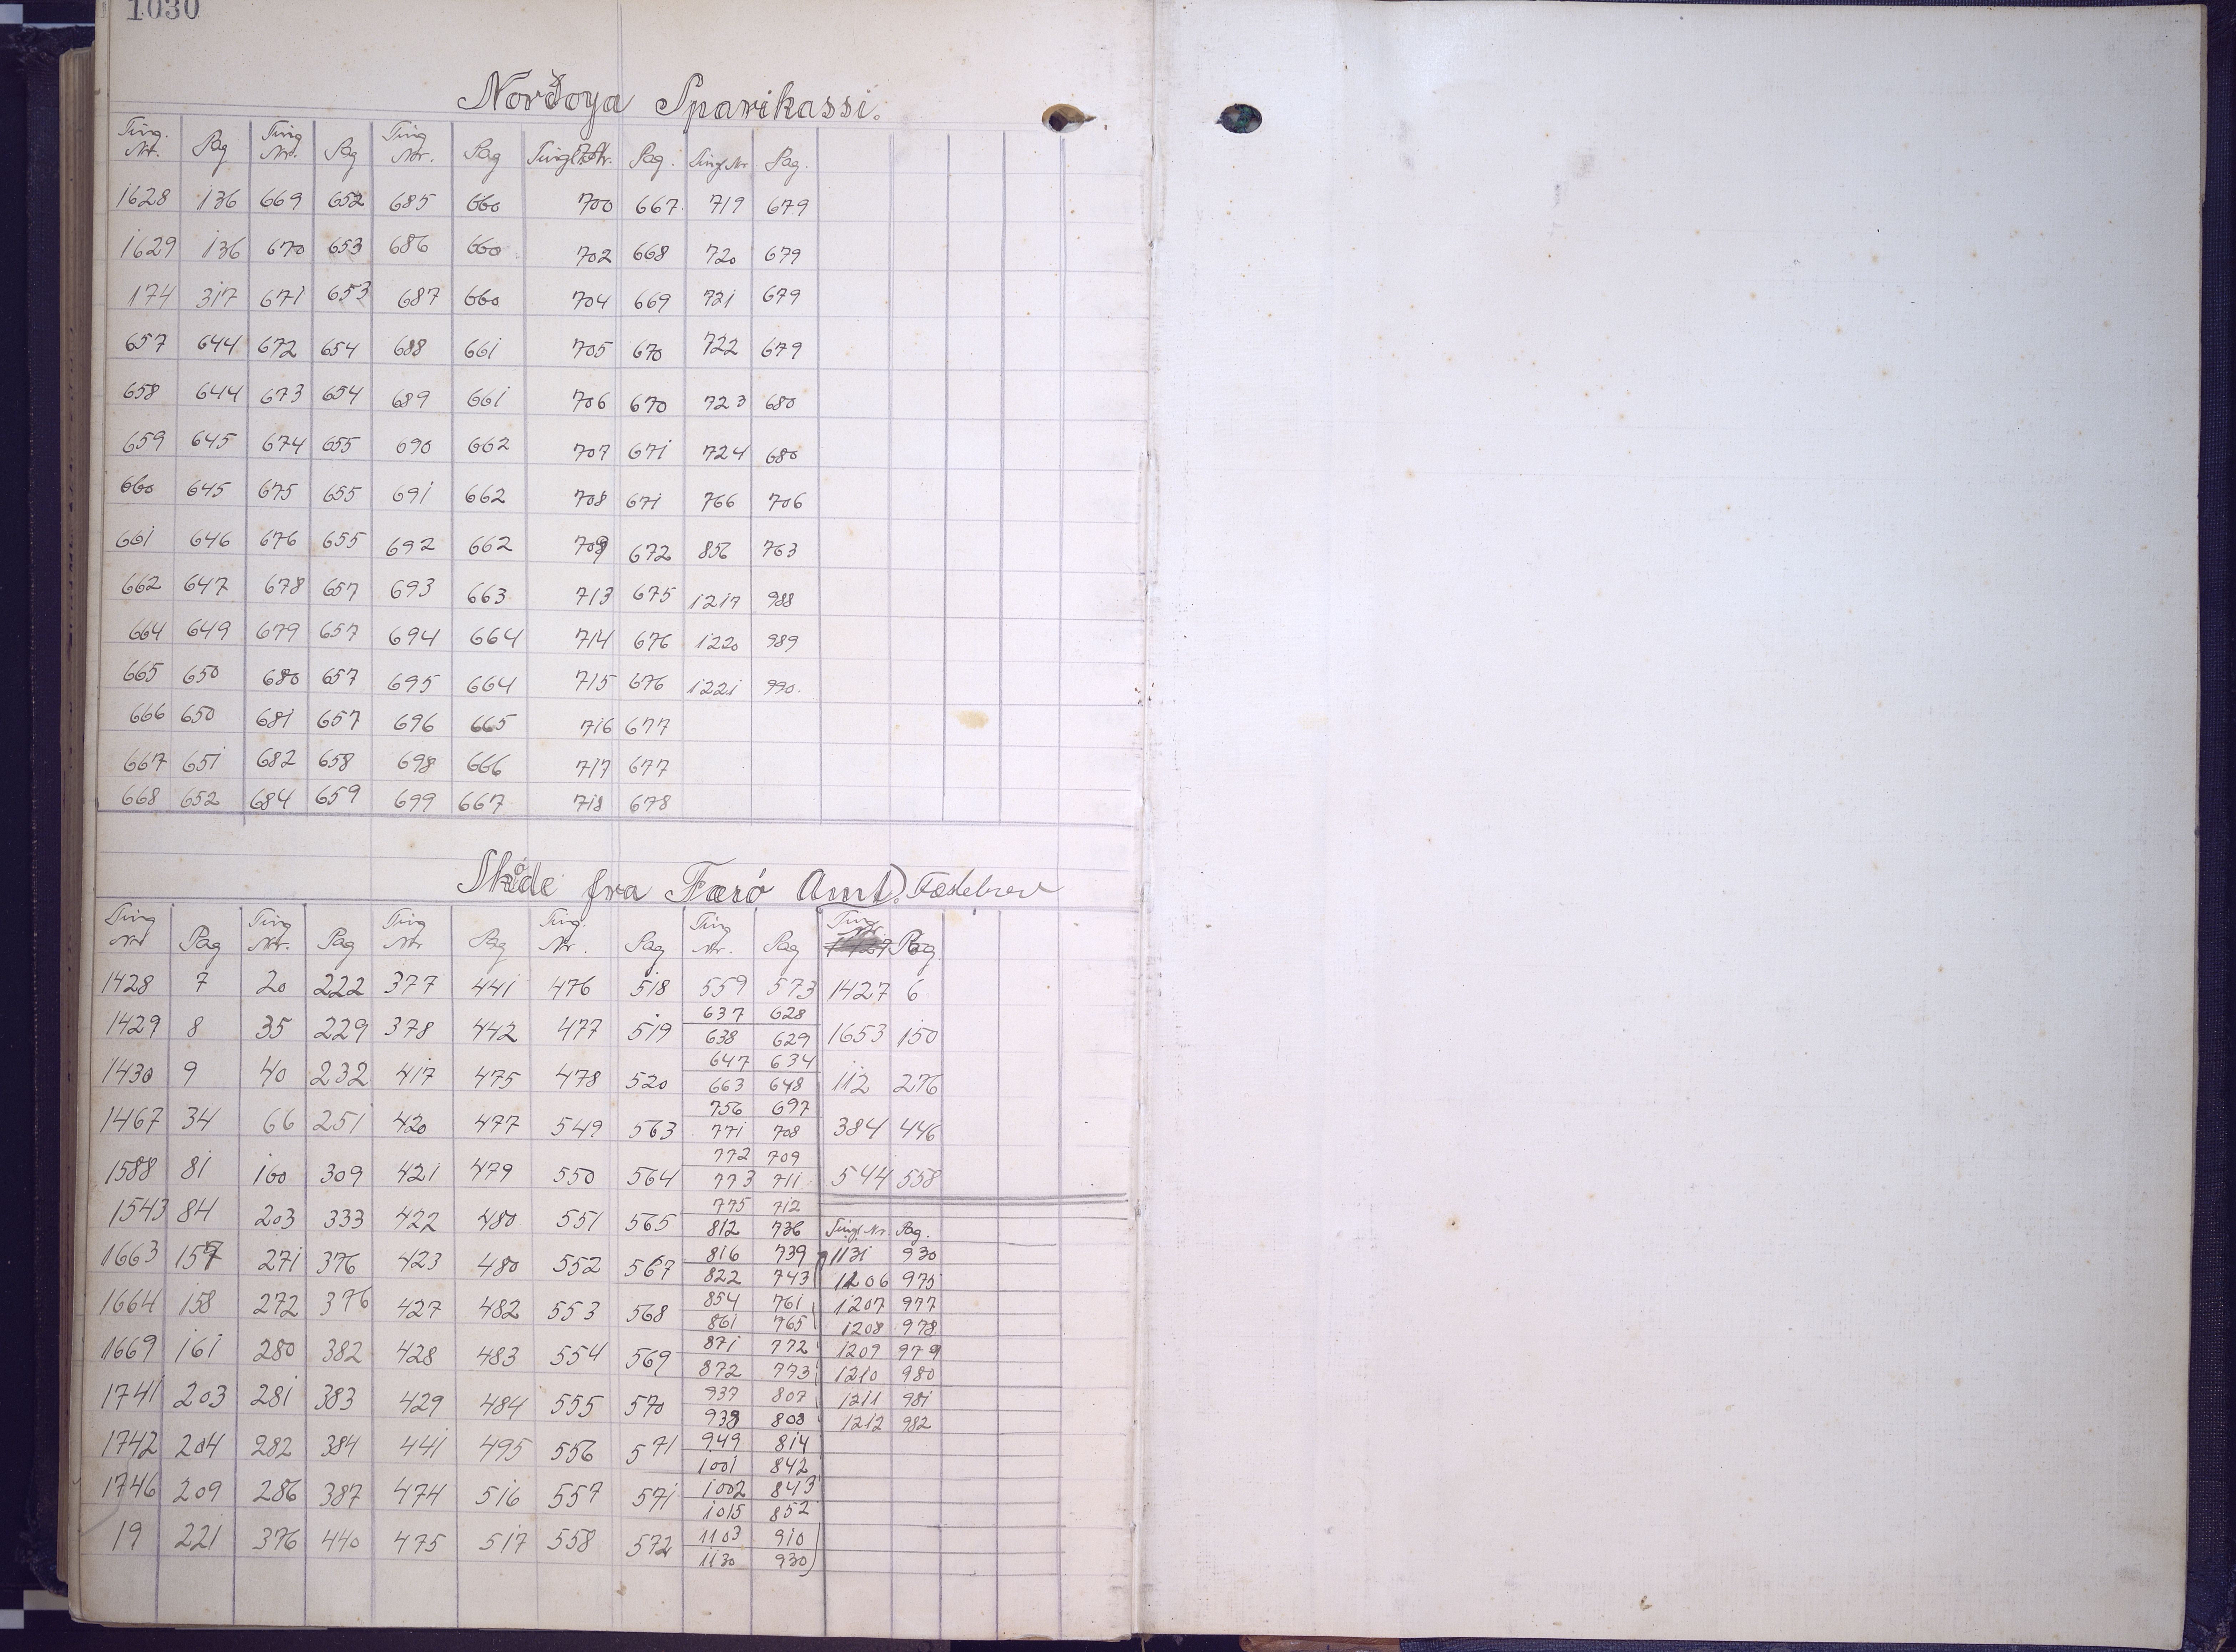 1030
Norðoya Sparikassi.
Ting. Nr. Pag Ting Nr. Pag Ting Nr. Pag Tingl. Nr. Pag. Tingl. Nr Pag.
1628 136 669 652 685 660 700 667 719 679
1629 136 670 653 686 660 702 668 720 679
174 317 671 653 687 660 704 669 721 679
657 644 672 654 688 661 705 670 722 679
658 644 673 654 689 661 706 670 723 680
659 645 674 655 690 662 707 671 724 680
660 645 675 655 691 662 708 671 766 706
661 646 676 655 692 662 709 672 856 763
662 647 678 657 693 663 713 675 1217 988
664 649 679 657 694 664 714 676 1220 989
665 650 680 657 695 664 715 676 1221 990.
666 650 681 657 696 665 716 677
667 651 682 658 698 666 717 677
668 652 684 659 699 667 718 678
Skøde fra Færö Amt. Fæstebrev
Ting Nr Pag Ting Nr. Pag Ting Nr Pag Ting. Nr. Pag Ting Nr. Pag Ting Nr. Pag
1428 7 20 222 377 441 476 518 559 573 1427 6
637 628
1429 8 35 229 378 442 477 519 638 629 1653 150
647 634
1430 9 40 232 417 475 478 520 663 648 112 276
756 697
1467 34 66 251 420 477 549 563 771 708 384 446
772 709
1588 81 160 309 421 479 550 564 773 711 544 558
775 712
1543 84 203 333 422 480 551 565 812 736 Tingl. Nr. Pag.
816 739 1131 930
1663 157 271 376 423 480 552 567 822 743 1206 975
854 761 1207 977
1664 158 272 376 427 482 553 568 861 765 1208 978
871 772 1209 979
1669 161 280 382 428 483 554 569 872 773 1210 980
937 807 1211 981
1741 203 281 383 429 484 555 570 938 808 1212 982
949 814
1742 204 282 384 441 495 556 571 1001 842
1002 843
1746 209 286 387 474 516 557 571 1015 852
1103 910
19 221 376 440 475 517 558 572 1130 930